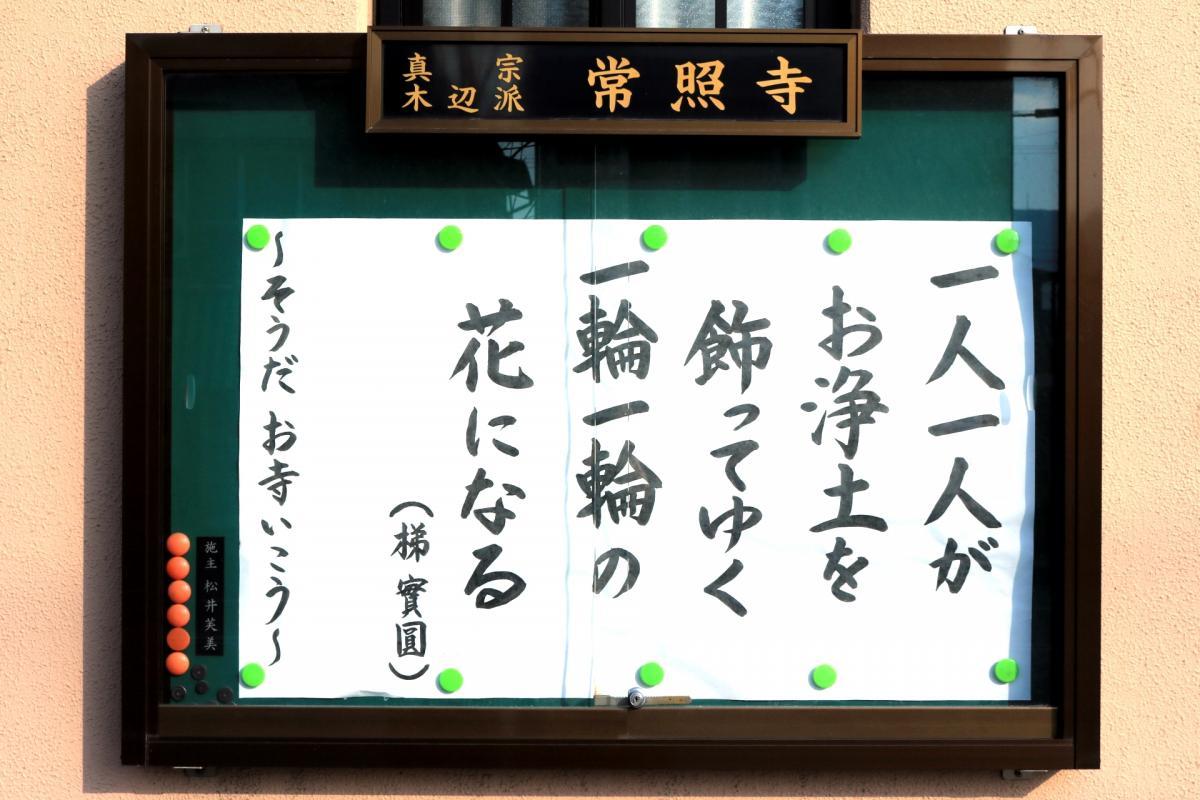 真宗
木辺派
常照寺
一人一人が
お浄土を
飾ってゆく
一輪一輪の
花になる
（梯 實圓）
～そうだ お寺いこう～
施主 松井芙美